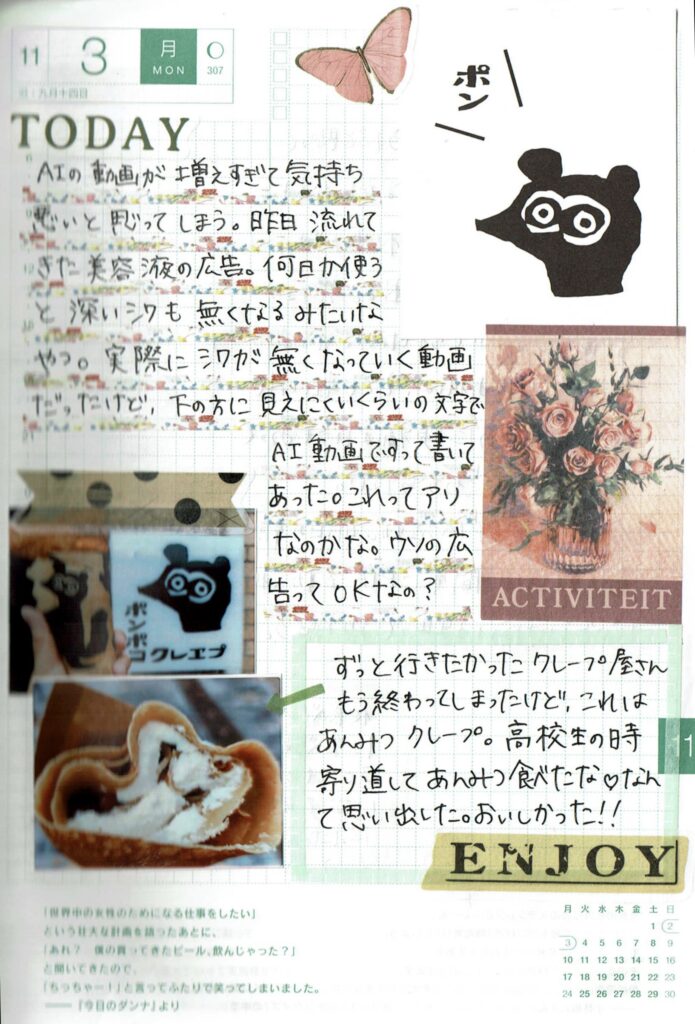 11
3
月
MON
307
旧:九月十四日
TODAY
AIの動画が増えすぎて気持ち
悪いと思ってしまう。昨日流れて
きた美容液の広告。何日か使う
と深いシワも無くなるみたいな
やつ。実際にシワが無くなっていく動画
だったけど、下の方に見えにくいくらいの文字で
AI動画ですって書いて
あった。これってアリ
なのかな。ウソの広
告ってOKなの?
ポン
ACTIVITEIT
ポンポコ
クレエプ
ずっと行きたかったクレープ屋さん
もう終わってしまったけど、これは
あんみつクレープ。高校生の時
寄り道してあんみつ食べたな♡なん
て思い出した。おいしかった!!
11
ENJOY
「世界中の女性のためになる仕事をしたい」
という壮大な計画を語ったあとに、
「あれ? 僕の買ってきたビール、飲んじゃった?」
と聞いてきたので、
「ちっちゃー!」と言ってふたりで笑ってしまいました。
──『今日のダンナ』より
月 火 水 木 金 土 日
1 2
3 4 5 6 7 8 9
10 11 12 13 14 15 16
17 18 19 20 21 22 23
24 25 26 27 28 29 30